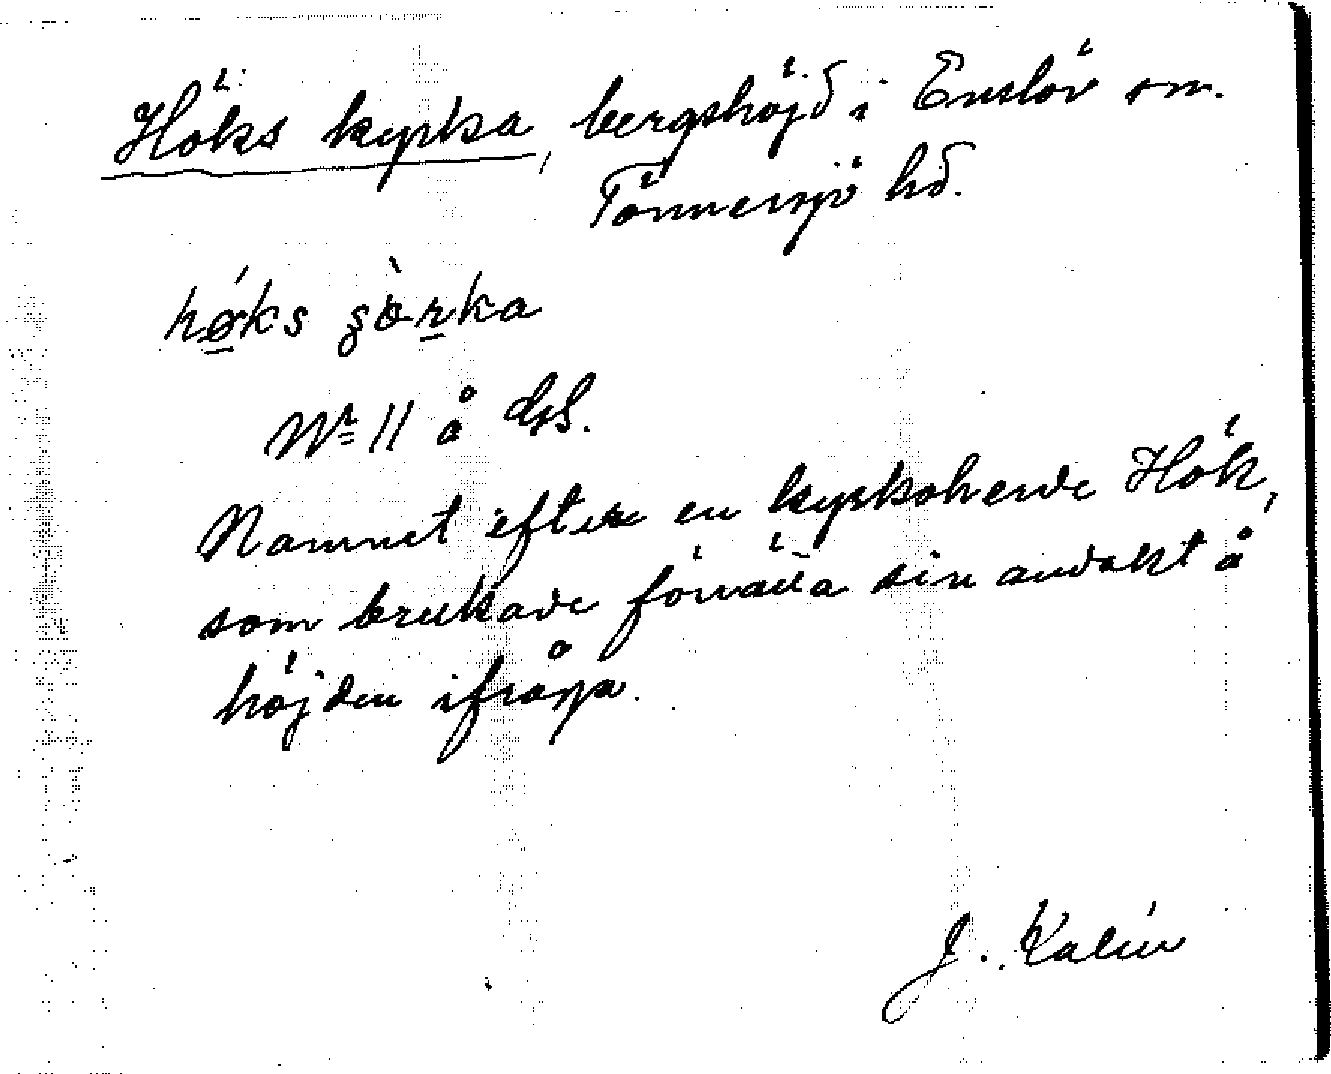 Höks kyrka, bergshöjd i Enslöv sn.
Tönnersjö hd.
hǿks ʂòrka
Nr 11 å GS.
Namnet efter en kyrkoherde Hök,
som brukade förrätta sin andakt å
höjden ifråga.
J. Kalén